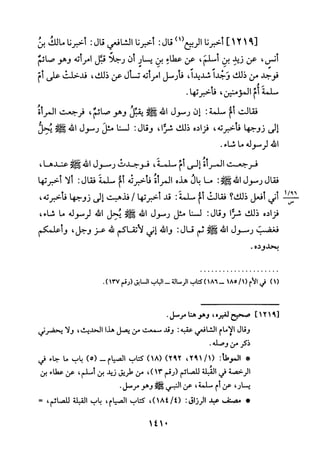 [١٢١٩] أخبرنا الربيع(١) قال: أخبرنا الشافعي قال: أخبرنا مالكُ بنُ
أنس، عن زيدِ بنِ أسلمَ، عن عطاءِ بنِ يسارٍ أن رجلًا قبَّل امرأته وهو صائمٌ
فوجد من ذلك وَجْداً شديداً، فأرسل امرأته تسأل عن ذلك، فدخلتْ على أمِّ
سلمةَ أمِّ المؤمنين، فأخبرتها.
فقالت أمُّ سلمة: إن رسول الله ﷺ يقبِّلُ وهو صائمٌ، فرجعت المرأةُ
إلى زوجها فأخبرته، فزاده ذلك شرًّا، وقال: لسنا مثلَ رسول الله ﷺ يُحِلُّ
الله لرسوله ما شاء.
فرجعت المرأةُ إلى أمِّ سلمةَ، فوجدتْ رسول الله ﷺ عندها،
فقال رسول الله ﷺ: ما بالُ هذه المرأةِ فأخبرتْه أمُّ سلمةَ فقال: ألا أخبرتها
أني أفعل ذلك؟ فقالتْ أمُّ سلمةَ: قد أخبرتها / فذهبت إلى زوجها فأخبرته،
١/٩٦
ص
فزاده ذلك شرًّا وقال: لسنا مثل رسول الله ﷺ يُحِل الله لرسوله ما شاء،
فغضبَ رسول الله ﷺ ثم قال: والله إني لأتقاكم لله عز وجل، وأعلمكم
بحدوده.
(١) في الأم (١/ ١٨٥ ــ ١٨٦) كتاب الرسالة ــ الباب السابق (رقم ١٣٧).
[١٢١٩] صحيح لغيره، وهو هنا مرسل.
وقال الإمام الشافعي عقبه: وقد سمعت من يصل هذا الحديث، ولا يحضرني
ذكر من وصله.
* الموطأ: (١/ ٢٩١، ٢٩٢) (١٨) كتاب الصيام ــ (٥) باب ما جاء في
الرخصة في القُبلة للصائم (رقم ١٣)، من طريق زيد بن أسلم، عن عطاء بن
يسار، عن أم سلمة، عن النبي ﷺ وهو مرسل.
* مصنف عبد الرزاق: (٤/ ١٨٤)، كتاب الصيام، باب القبلة للصائم، =
١٤١٠